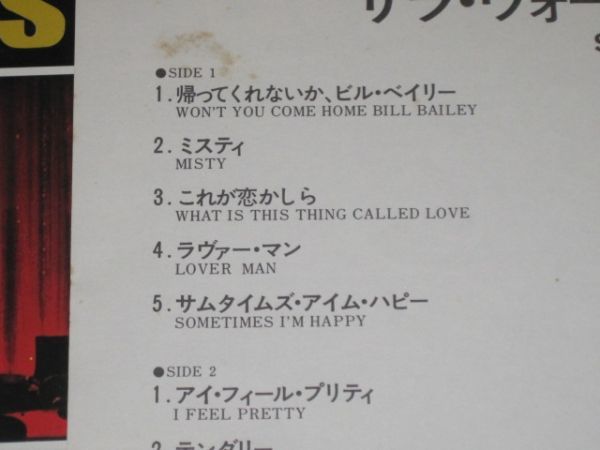 S
サラ・ヴォー
●SIDE 1
1. 帰ってくれないか、ビル・ベイリー
WON'T YOU COME HOME BILL BAILEY
2. ミスティ
MISTY
3. これが恋かしら
WHAT IS THIS THING CALLED LOVE
4. ラヴァー・マン
LOVER MAN
5. サムタイムズ・アイム・ハピー
SOMETIMES I'M HAPPY
●SIDE 2
1. アイ・フィール・プリティ
I FEEL PRETTY
2. テンダリー